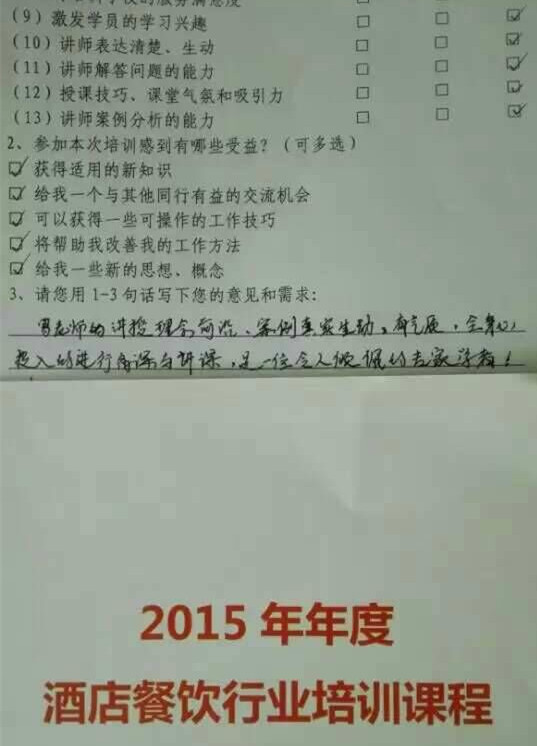 (9) 激发学员的学习兴趣 □ □ ☑
(10) 讲师表达清楚、生动 □ □ ☑
(11) 讲师解答问题的能力 □ □ ☑
(12) 授课技巧、课堂气氛和吸引力 □ □ ☑
(13) 讲师案例分析的能力 □ □ ☑
2、参加本次培训感到有哪些受益？（可多选）
☑ 获得适用的新知识
☑ 给我一个与其他同行有益的交流机会
☑ 可以获得一些可操作的工作技巧
☑ 将帮助我改善我的工作方法
☑ 给我一些新的思想、概念
3、请您用 1-3 句话写下您的意见和需求:
老师的讲授理念简洁、案例真实生动。全身心
投入的进行备课与讲课，是一位令人佩的专家学者！
2015 年年度
酒店餐饮行业培训课程